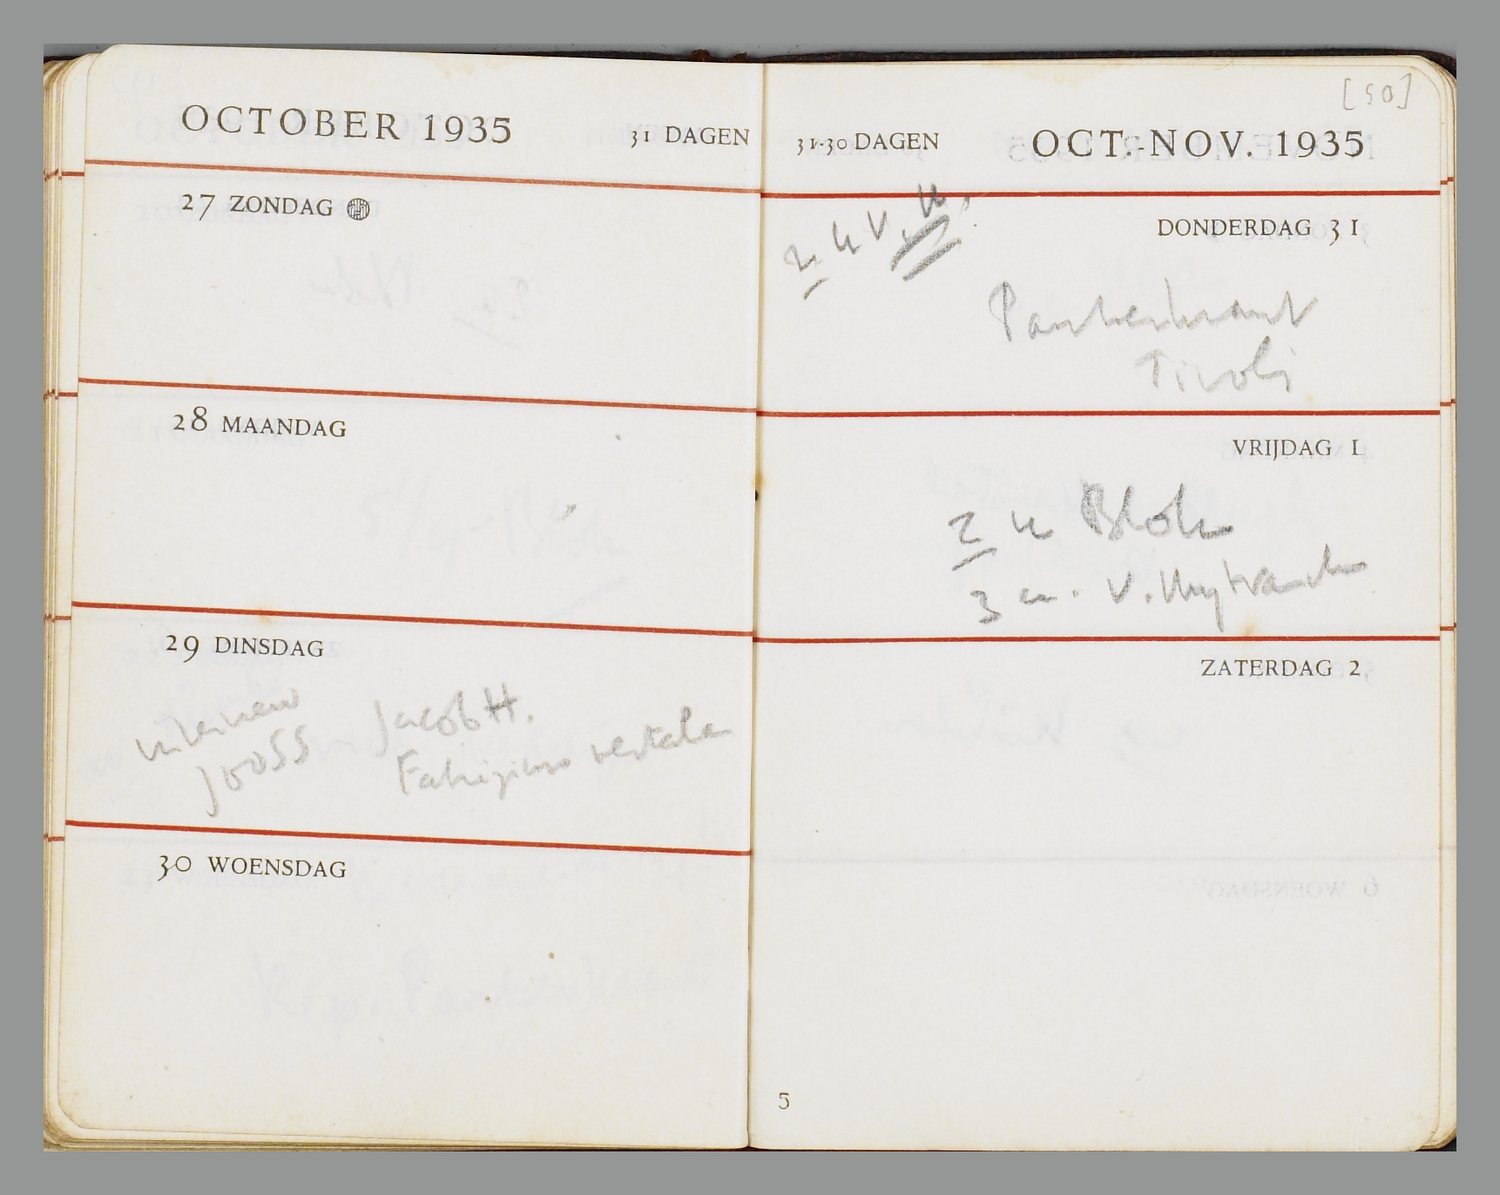 OCTOBER 1935 31 DAGEN
27 ZONDAG
28 MAANDAG
29 DINSDAG
interview Jacob H.
JOOSS
30 WOENSDAG
[50]
31-30 DAGEN OCT.-NOV. 1935
DONDERDAG 31
2 u v.
Tivoli
VRIJDAG 1
2 u Blok
3 u. v.
ZATERDAG 2
5